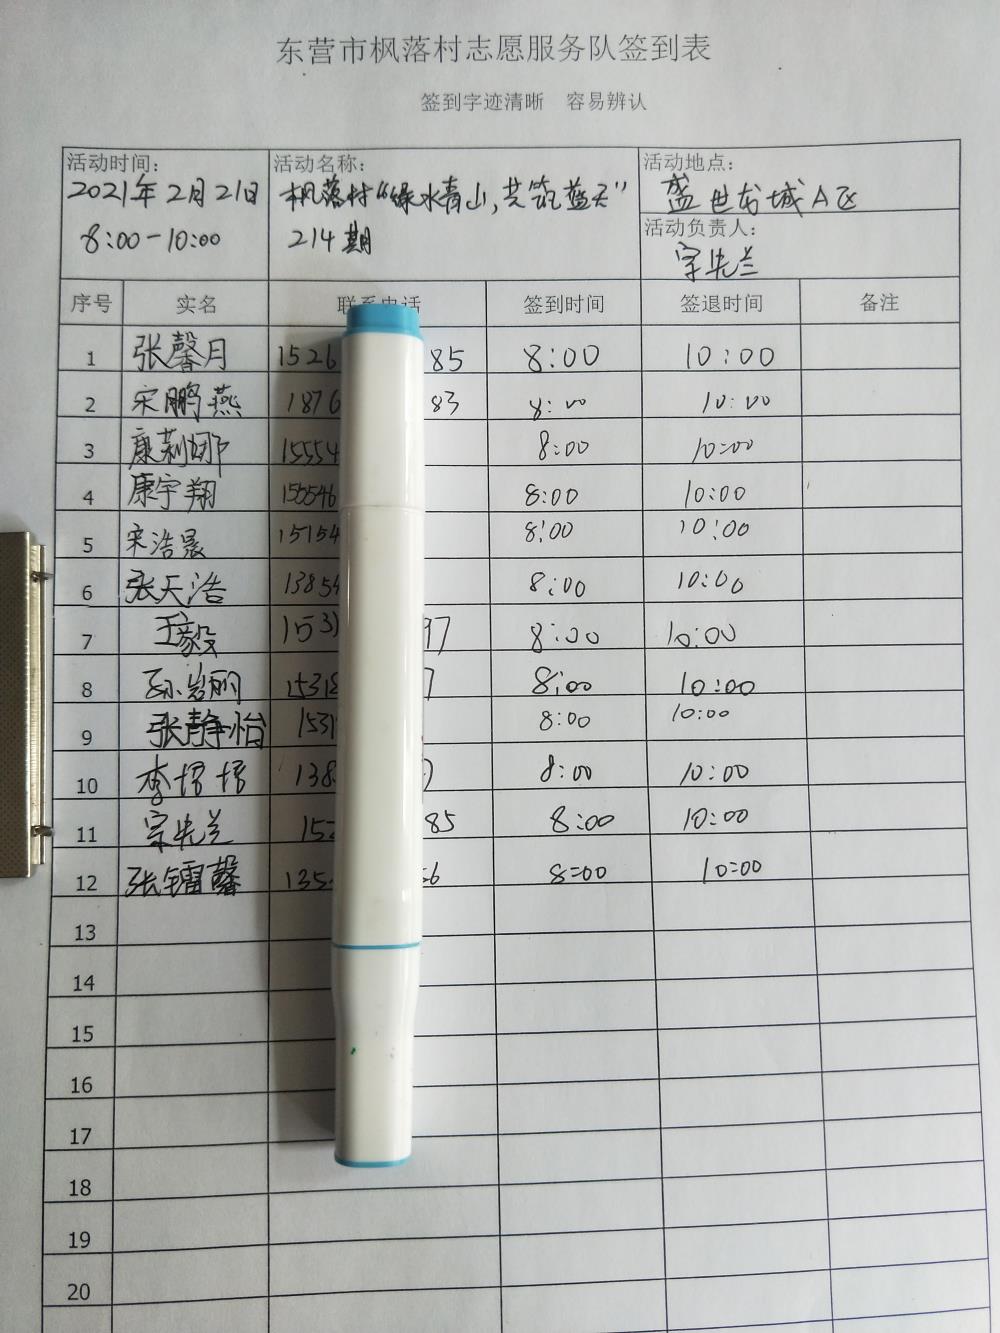 东营市枫落村志愿服务队签到表
签到字迹清晰 容易辨认
活动时间: 活动名称: 活动地点:
2021年2月21日 枫落村“绿水青山,共筑蓝天” 盛世龙城A区
8:00-10:00 214期 活动负责人:
宗先兰
序号 实名 联系电话 签到时间 签退时间 备注
1 张馨月 1526 85 8:00 10:00
2 宋鹏燕 1876 83 8:00 10:00
3 康莉娜 15554 8:00 10:00
4 康宇翔 155546 8:00 10:00
5 宋浩晟 15154 8:00 10:00
6 张天浩 13854 8:00 10:00
7 王毅 1531 97 8:00 10:00
8 孙岩丽 15318 7 8:00 10:00
9 张静怡 1531 8:00 10:00
10 李 138 8:00 10:00
11 宗先兰 152 85 8:00 10:00
12 张镭馨 135 66 8:00 10:00
13
14
15
16
17
18
19
20